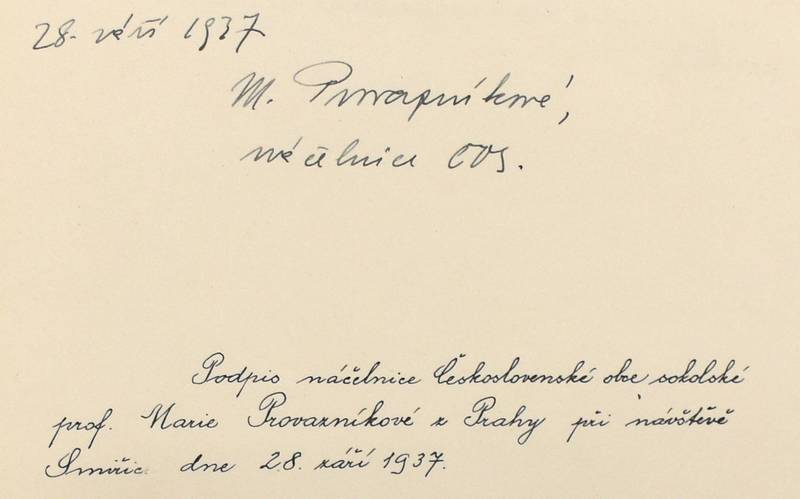 28. září 1937
M. Provazníková,
náčelnice ČOS.
Podpis náčelnice Československé obce sokolské
prof. Marie Provazníkové z Prahy při návštěvě
Smiřic dne 28. září 1937.